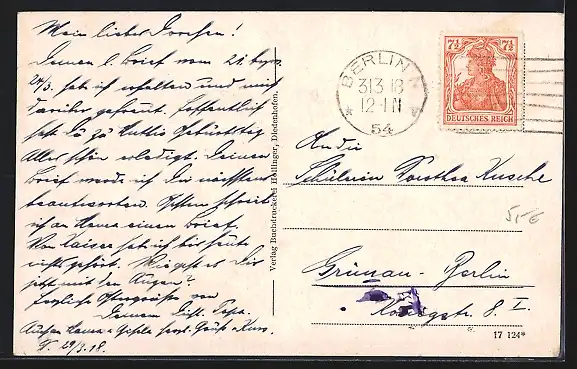 Mein liebes Dorchen!
Deinen l. Brief vom 21. bezw.
24/3. hab ich erhalten und mich
darüber gefreut. Hoffentlich
hast Du zu Muttis Geburtstag
Alles schön erledigt. Deinen
Brief werde ich Dir nächstens
beantworten. Gestern schrieb
ich an Mama einen Brief.
Von Kaiser hab ich bis heute
nichts gehört. Wie geht es Dir
jetzt mit den Augen?
Herzliche Ostergrüße von
Deinem Papa.
Auch an Mama herzl. Gruß u. Kuss.
29/3.18.
Verlag Buchdruckerei Hollinger, Diedenhofen.
BERLIN N
31.3.18
12-1 N
* 54
7½ 7½
DEUTSCHES REICH
An die
Schülerin Dorothea
5,-€
Grünau-Berlin
8 I.
17 124*